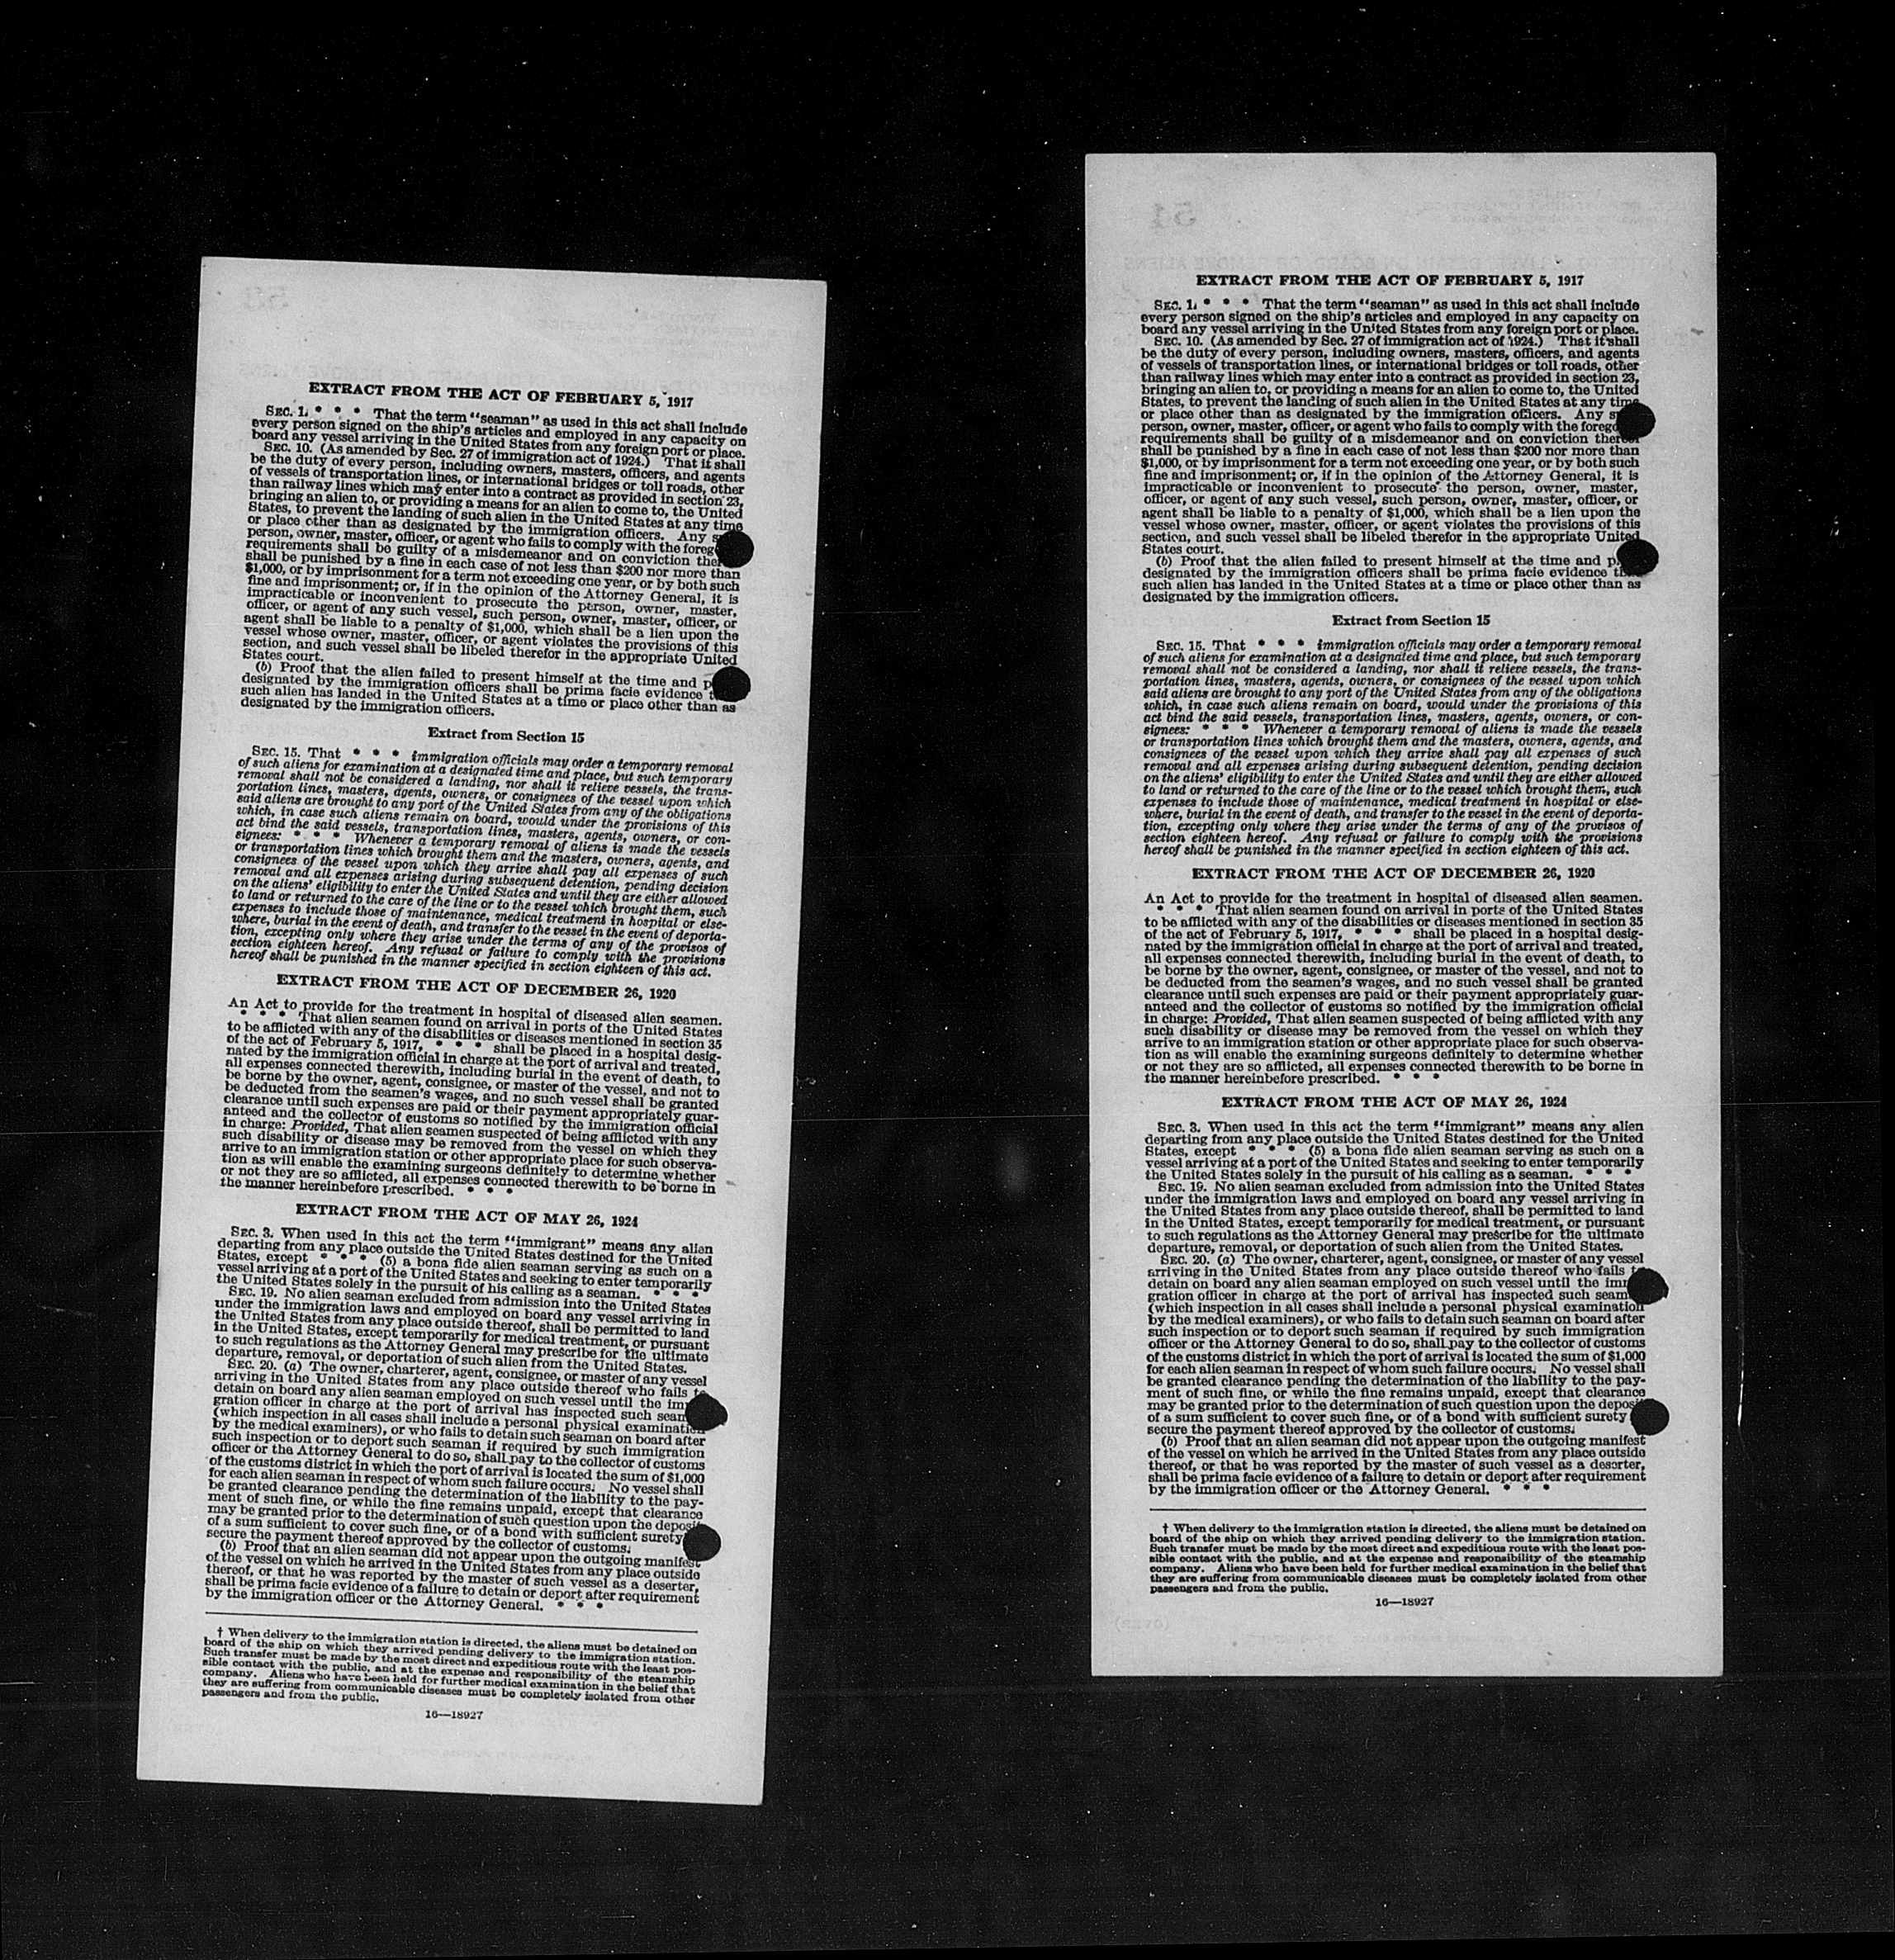 EXTRACT FROM THE ACT OF FEBRUARY 5, 1917
SEC. 1. * * * That the term "seaman" as used in this act shall include
every person signed on the ship's articles and employed in any capacity on
board any vessel arriving in the United States from any foreign port or place.
SEC. 10. (As amended by Sec. 27 of immigration act of 1924.) That it shall
be the duty of every person, including owners, masters, officers, and agents
of vessels of transportation lines, or international bridges or toll roads, other
than railway lines which may enter into a contract as provided in section 23,
bringing an alien to, or providing a means for an alien to come to, the United
States, to prevent the landing of such alien in the United States at any time
or place other than as designated by the immigration officers. Any
person, owner, master, officer, or agent who fails to comply with the
requirements shall be guilty of a misdemeanor and on conviction
shall be punished by a fine in each case of not less than $200 nor more than
$1,000, or by imprisonment for a term not exceeding one year, or by both such
fine and imprisonment; or, if in the opinion of the Attorney General, it is
impracticable or inconvenient to prosecute the person, owner, master,
officer, or agent of any such vessel, such person, owner, master, officer, or
agent shall be liable to a penalty of $1,000, which shall be a lien upon the
vessel whose owner, master, officer, or agent violates the provisions of this
section, and such vessel shall be libeled therefor in the appropriate United
States court.
(b) Proof that the alien failed to present himself at the time and
designated by the immigration officers shall be prima facie evidence
such alien has landed in the United States at a time or place other than as
designated by the immigration officers.
Extract from Section 15
SEC. 15. That * * * immigration officials may order a temporary removal
of such aliens for examination at a designated time and place, but such temporary
removal shall not be considered a landing, nor shall it relieve vessels, the trans-
portation lines, masters, agents, owners, or consignees of the vessel upon which
said aliens are brought to any port of the United States from any of the obligations
which, in case such aliens remain on board, would under the provisions of this
act bind the said vessels, transportation lines, masters, agents, owners, or con-
signees: * * * Whenever a temporary removal of aliens is made the vessels
or transportation lines which brought them and the masters, owners, agents, and
consignees of the vessel upon which they arrive shall pay all expenses of such
removal and all expenses arising during subsequent detention, pending decision
on the aliens' eligibility to enter the United States and until they are either allowed
to land or returned to the care of the line or to the vessel which brought them, such
expenses to include those of maintenance, medical treatment in hospital or else-
where, burial in the event of death, and transfer to the vessel in the event of deporta-
tion, excepting only where they arise under the terms of any of the provisos of
section eighteen hereof. Any refusal or failure to comply with the provisions
hereof shall be punished in the manner specified in section eighteen of this act.
EXTRACT FROM THE ACT OF DECEMBER 26, 1920
An Act to provide for the treatment in hospital of diseased alien seamen.
* * * That alien seamen found on arrival in ports of the United States
to be afflicted with any of the disabilities or diseases mentioned in section 35
of the act of February 5, 1917, * * * shall be placed in a hospital desig-
nated by the immigration official in charge at the port of arrival and treated,
all expenses connected therewith, including burial in the event of death, to
be borne by the owner, agent, consignee, or master of the vessel, and not to
be deducted from the seamen's wages, and no such vessel shall be granted
clearance until such expenses are paid or their payment appropriately guar-
anteed and the collector of customs so notified by the immigration official
in charge: Provided, That alien seamen suspected of being afflicted with any
such disability or disease may be removed from the vessel on which they
arrive to an immigration station or other appropriate place for such observa-
tion as will enable the examining surgeons definitely to determine whether
or not they are so afflicted, all expenses connected therewith to be borne in
the manner hereinbefore prescribed. * * *
EXTRACT FROM THE ACT OF MAY 26, 1924
SEC. 3. When used in this act the term "immigrant" means any alien
departing from any place outside the United States destined for the United
States, except * * * (5) a bona fide alien seaman serving as such on a
vessel arriving at a port of the United States and seeking to enter temporarily
the United States solely in the pursuit of his calling as a seaman. * * *
SEC. 19. No alien seaman excluded from admission into the United States
under the immigration laws and employed on board any vessel arriving in
the United States from any place outside thereof, shall be permitted to land
in the United States, except temporarily for medical treatment, or pursuant
to such regulations as the Attorney General may prescribe for the ultimate
departure, removal, or deportation of such alien from the United States.
SEC. 20. (a) The owner, charterer, agent, consignee, or master of any vessel
arriving in the United States from any place outside thereof who fails to
detain on board any alien seaman employed on such vessel until the
gration officer in charge at the port of arrival has inspected such
(which inspection in all cases shall include a personal physical examination
by the medical examiners), or who fails to detain such seaman on board after
such inspection or to deport such seaman if required by such immigration
officer or the Attorney General to do so, shall pay to the collector of customs
of the customs district in which the port of arrival is located the sum of $1,000
for each alien seaman in respect of whom such failure occurs. No vessel shall
be granted clearance pending the determination of the liability to the pay-
ment of such fine, or while the fine remains unpaid, except that clearance
may be granted prior to the determination of such question upon the deposit
of a sum sufficient to cover such fine, or of a bond with sufficient surety
secure the payment thereof approved by the collector of customs.
(b) Proof that an alien seaman did not appear upon the outgoing manifest
of the vessel on which he arrived in the United States from any place outside
thereof, or that he was reported by the master of such vessel as a deserter,
shall be prima facie evidence of a failure to detain or deport after requirement
by the immigration officer or the Attorney General. * * *
† When delivery to the immigration station is directed, the aliens must be detained on
board of the ship on which they arrived pending delivery to the immigration station.
Such transfer must be made by the most direct and expeditious route with the least pos-
sible contact with the public, and at the expense and responsibility of the steamship
company. Aliens who have been held for further medical examination in the belief that
they are suffering from communicable diseases must be completely isolated from other
passengers and from the public.
16—18927
EXTRACT FROM THE ACT OF FEBRUARY 5, 1917
SEC. 1. * * * That the term "seaman" as used in this act shall include
every person signed on the ship's articles and employed in any capacity on
board any vessel arriving in the United States from any foreign port or place.
SEC. 10. (As amended by Sec. 27 of immigration act of 1924.) That it shall
be the duty of every person, including owners, masters, officers, and agents
of vessels of transportation lines, or international bridges or toll roads, other
than railway lines which may enter into a contract as provided in section 23,
bringing an alien to, or providing a means for an alien to come to, the United
States, to prevent the landing of such alien in the United States at any time
or place other than as designated by the immigration officers. Any
person, owner, master, officer, or agent who fails to comply with the
requirements shall be guilty of a misdemeanor and on conviction thereof
shall be punished by a fine in each case of not less than $200 nor more than
$1,000, or by imprisonment for a term not exceeding one year, or by both such
fine and imprisonment; or, if in the opinion of the Attorney General, it is
impracticable or inconvenient to prosecute the person, owner, master,
officer, or agent of any such vessel, such person, owner, master, officer, or
agent shall be liable to a penalty of $1,000, which shall be a lien upon the
vessel whose owner, master, officer, or agent violates the provisions of this
section, and such vessel shall be libeled therefor in the appropriate United
States court.
(b) Proof that the alien failed to present himself at the time and
designated by the immigration officers shall be prima facie evidence
such alien has landed in the United States at a time or place other than as
designated by the immigration officers.
Extract from Section 15
SEC. 15. That * * * immigration officials may order a temporary removal
of such aliens for examination at a designated time and place, but such temporary
removal shall not be considered a landing, nor shall it relieve vessels, the trans-
portation lines, masters, agents, owners, or consignees of the vessel upon which
said aliens are brought to any port of the United States from any of the obligations
which, in case such aliens remain on board, would under the provisions of this
act bind the said vessels, transportation lines, masters, agents, owners, or con-
signees: * * * Whenever a temporary removal of aliens is made the vessels
or transportation lines which brought them and the masters, owners, agents, and
consignees of the vessel upon which they arrive shall pay all expenses of such
removal and all expenses arising during subsequent detention, pending decision
on the aliens' eligibility to enter the United States and until they are either allowed
to land or returned to the care of the line or to the vessel which brought them, such
expenses to include those of maintenance, medical treatment in hospital or else-
where, burial in the event of death, and transfer to the vessel in the event of deporta-
tion, excepting only where they arise under the terms of any of the provisos of
section eighteen hereof. Any refusal or failure to comply with the provisions
hereof shall be punished in the manner specified in section eighteen of this act.
EXTRACT FROM THE ACT OF DECEMBER 26, 1920
An Act to provide for the treatment in hospital of diseased alien seamen.
* * * That alien seamen found on arrival in ports of the United States
to be afflicted with any of the disabilities or diseases mentioned in section 35
of the act of February 5, 1917, * * * shall be placed in a hospital desig-
nated by the immigration official in charge at the port of arrival and treated,
all expenses connected therewith, including burial in the event of death, to
be borne by the owner, agent, consignee, or master of the vessel, and not to
be deducted from the seamen's wages, and no such vessel shall be granted
clearance until such expenses are paid or their payment appropriately guar-
anteed and the collector of customs so notified by the immigration official
in charge: Provided, That alien seamen suspected of being afflicted with any
such disability or disease may be removed from the vessel on which they
arrive to an immigration station or other appropriate place for such observa-
tion as will enable the examining surgeons definitely to determine whether
or not they are so afflicted, all expenses connected therewith to be borne in
the manner hereinbefore prescribed. * * *
EXTRACT FROM THE ACT OF MAY 26, 1924
SEC. 3. When used in this act the term "immigrant" means any alien
departing from any place outside the United States destined for the United
States, except * * * (5) a bona fide alien seaman serving as such on a
vessel arriving at a port of the United States and seeking to enter temporarily
the United States solely in the pursuit of his calling as a seaman. * * *
SEC. 19. No alien seaman excluded from admission into the United States
under the immigration laws and employed on board any vessel arriving in
the United States from any place outside thereof, shall be permitted to land
in the United States, except temporarily for medical treatment, or pursuant
to such regulations as the Attorney General may prescribe for the ultimate
departure, removal, or deportation of such alien from the United States.
SEC. 20. (a) The owner, charterer, agent, consignee, or master of any vessel
arriving in the United States from any place outside thereof who fails to
detain on board any alien seaman employed on such vessel until the
gration officer in charge at the port of arrival has inspected such
(which inspection in all cases shall include a personal physical examination
by the medical examiners), or who fails to detain such seaman on board after
such inspection or to deport such seaman if required by such immigration
officer or the Attorney General to do so, shall pay to the collector of customs
of the customs district in which the port of arrival is located the sum of $1,000
for each alien seaman in respect of whom such failure occurs. No vessel shall
be granted clearance pending the determination of the liability to the pay-
ment of such fine, or while the fine remains unpaid, except that clearance
may be granted prior to the determination of such question upon the deposit
of a sum sufficient to cover such fine, or of a bond with sufficient surety
secure the payment thereof approved by the collector of customs.
(b) Proof that an alien seaman did not appear upon the outgoing manifest
of the vessel on which he arrived in the United States from any place outside
thereof, or that he was reported by the master of such vessel as a deserter,
shall be prima facie evidence of a failure to detain or deport after requirement
by the immigration officer or the Attorney General. * * *
† When delivery to the immigration station is directed, the aliens must be detained on
board of the ship on which they arrived pending delivery to the immigration station.
Such transfer must be made by the most direct and expeditious route with the least pos-
sible contact with the public, and at the expense and responsibility of the steamship
company. Aliens who have been held for further medical examination in the belief that
they are suffering from communicable diseases must be completely isolated from other
passengers and from the public.
16—18927